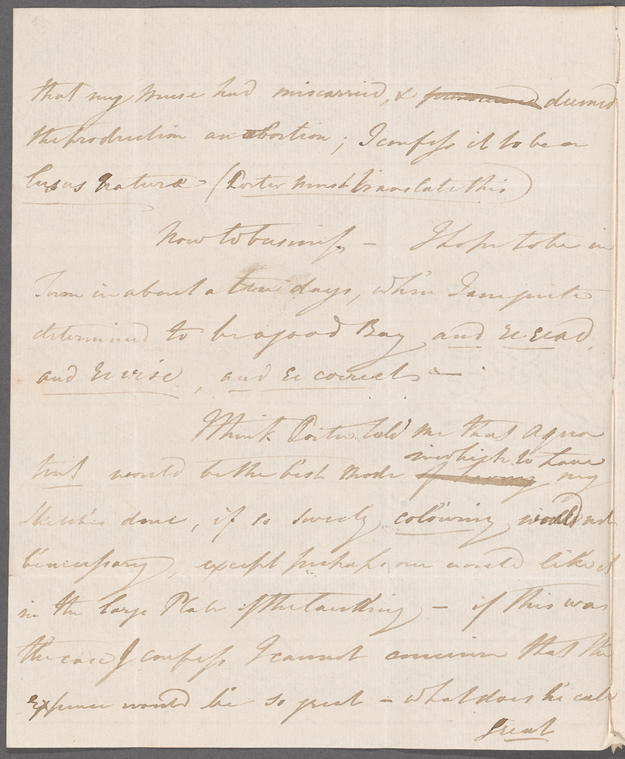 that my Muse had miscarried, & deemed
the production an abortion; I confess it to be a
lusus naturæ - (Porter must translate this)
Now to business - I hope to be in
Town in about a few days, when I am quite
determined to be a good Boy and Reread,
and Revise, and Recorrect -
I think Porter told me that Aqua
tint would be the best mode in which to have my
Sketches done, if so surely colouring would not
be necessary, except perhaps one would like it
in the large Plate of the landing - if this was
the case I confess I cannot conceive that the
expense would be so great - what does he call
great